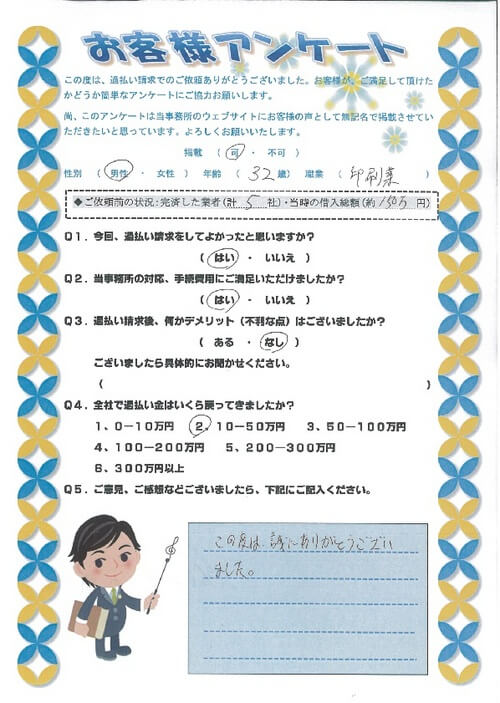 お客様アンケート
この度は、過払い請求でのご依頼ありがとうございました。お客様が、ご満足して頂けた
かどうか簡単なアンケートにご協力お願いします。
尚、このアンケートは当事務所のウェブサイトにお客様の声として無記名で掲載させてい
ただきたいと思っています。よろしくお願いいたします。
掲載 ( 可 ・ 不可 )
性別 ( 男性 ・ 女性 ) 年齢 ( 32歳) 職業 ( 印刷業 )
◆ご依頼前の状況:完済した業者(計 5 社)・当時の借入総額(約150万 円)
Q1．今回、過払い請求をしてよかったと思いますか？
( はい ・ いいえ )
Q2．当事務所の対応、手続費用にご満足いただけましたか？
( はい ・ いいえ )
Q3．過払い請求後、何かデメリット（不利な点）はございましたか？
( ある ・ なし )
ございましたら具体的にお聞かせください。
( )
Q4．全社で過払い金はいくら戻ってきましたか？
1、0－10万円 2、10－50万円 3、50－100万円
4、100－200万円 5、200－300万円
6、300万円以上
Q5．ご意見、ご感想などございましたら、下記にご記入ください。
この度は誠にありがとうござい
ました。